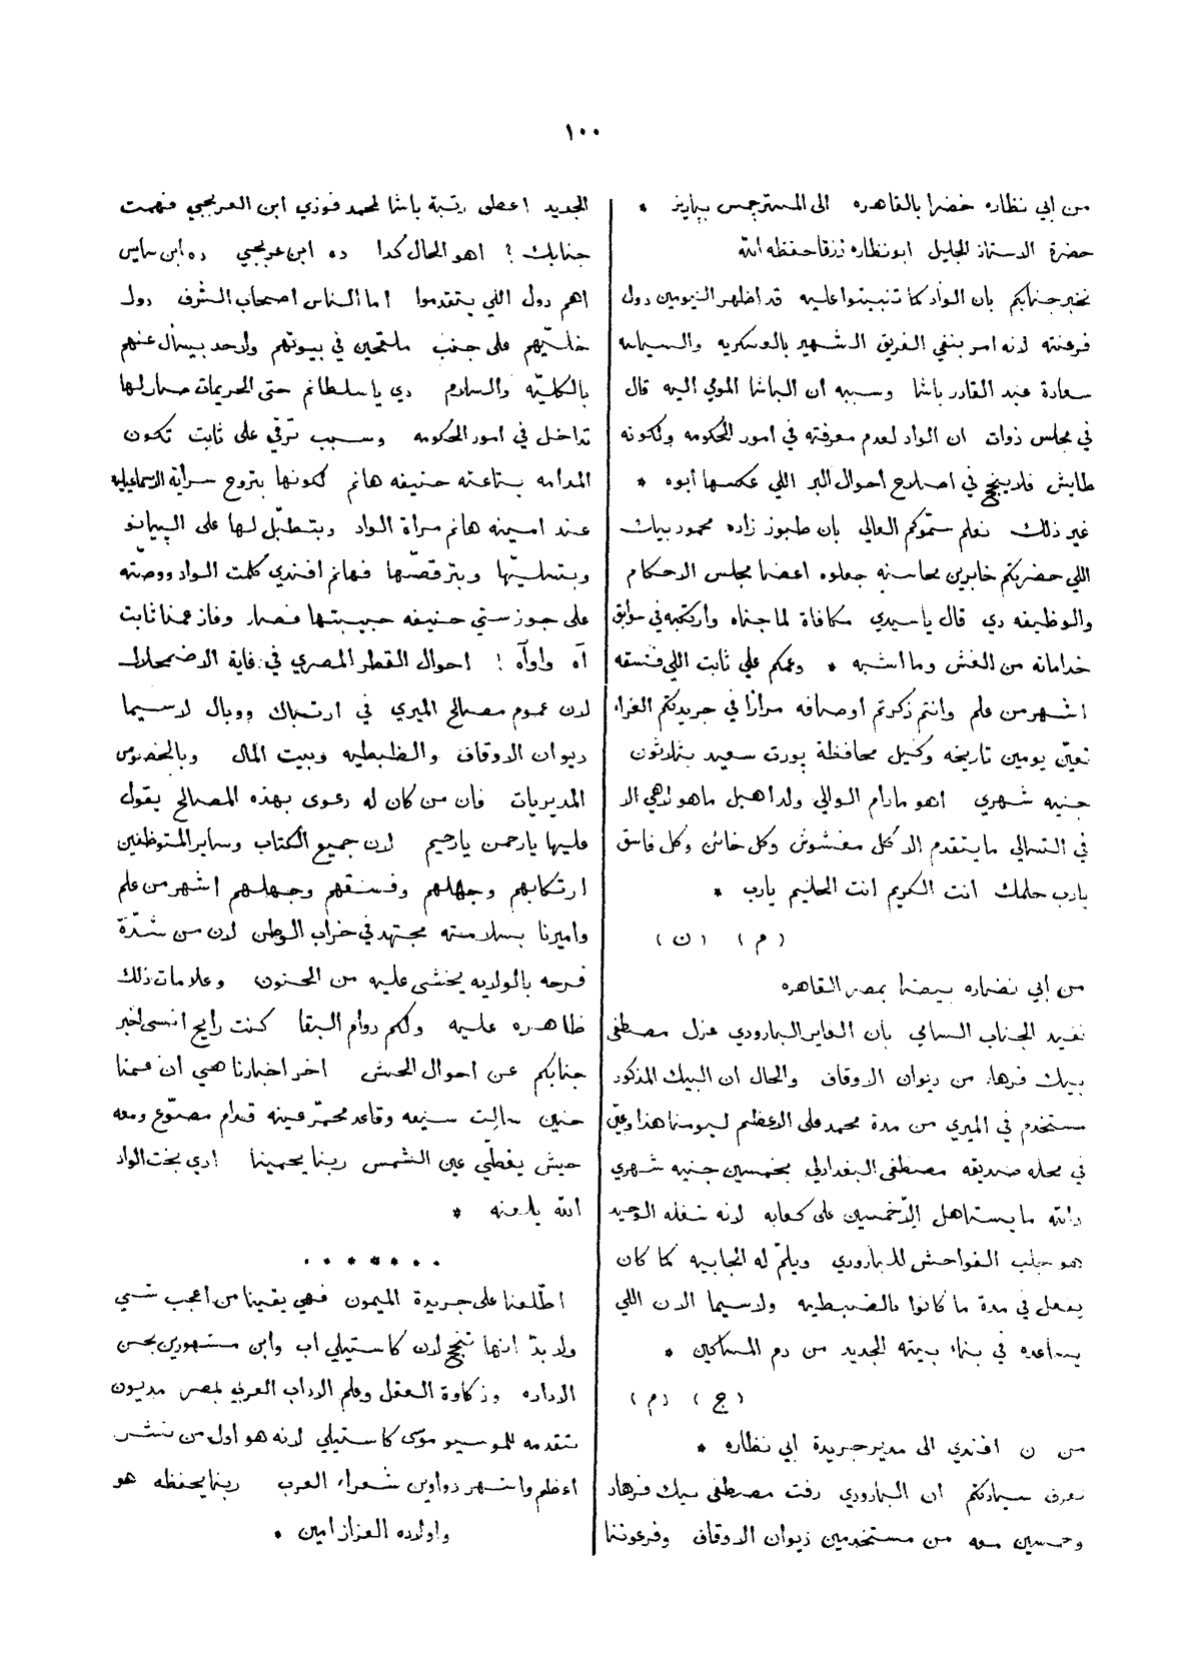 ١٠٠
من ابي نظاره خضرا بالقاهره الى المسترجمس بباريز *
حضرة الاستاذ الجليل ابونظاره زرقا حفظه الله
نخبر جنابكم بان الواد كما تنبيتوا عليه قد اظهر اليومين دول
فرعنته لانه امر بنفي الفريق الشهير بالعسكريه والسياسه
سعادة عبد القادر باشا وسببه ان الباشا المومي اليه قال
في مجلس ذوات ان الواد لعدم معرفته في امور الحكومه ولكونه
طايش فلا ينجح في اصلاح احوال البر اللي عكسها أبوه *
غير ذلك نعلم سموّكم العالي بان طبوز زاده محمود بيك
اللي حضرتكم خابرين محاسنه جعلوه اعضا مجلس الاحكام
والوظيفه دي قال ياسيدي مكافاة لما جناه وارتكبه في سوابق
خداماته من الغش وما اشبه * وعمكم علي ثابت اللي فسقه
اشهر من علم وانتم ذكرتم أوصافه مرارًا في جريدتكم الغراء
تعيّن يومين تاريخه وكيل محافظة بورت سعيد بثلاثون
جنيه شهري اهو مادام الوالي ولد اهبل ماهو لاهي الا
في التسالي ما يتقدم الا كل مغشوش وكل خائن وكل فاسق
يارب حلمك انت الكريم انت الحليم يارب *
( م ) ( ن )
من ابي نضاره بيضا بمصر القاهره
نفيد الجناب السامي بان الفاير البارودي عزل مصطفى
بيك فرهاد من ديوان الاوقاف والحال ان البيك المذكور
مستخدم في الميري من مدة محمد علي الاعظم ليومنا هذا وعيّن
في محله صديقه مصطفى البغدادلي بخمسين جنيه شهري
والله ما يستاهل الاّ خمسين على كعابه لانه شغله الوحيد
هو جلب الفواحش للبارودي ويلمّ له الجابيه كما كان
يفعل في مدة ما كانوا بالضبطيه ولاسيما الان اللي
يساعده في بناء بيته الجديد من دم المساكين *
( ج ) ( م )
من ن افندي الى مدير جريدة ابي نظاره *
نعرف سيادتكم ان البارودي رفت مصطفى بيك فرهاد
وخمسين معه من مستخدمين ديوان الاوقاف وفرعوننا
الجديد اعطى رتبة باشا لمحمد فوزي ابن العربجي فهمت
جنابك ؟ اهو الحال كدا ده ابن عربجي ده ابن سايس
اهم دول اللي يتقدموا اما الناس اصحاب الشرف دول
خليّهم على جنب ملقحين في بيوتهم ولا حد بيسأل عنهم
بالكليّه والسلام دي ياسلطانم حتى الحريمات صار لها
تداخل في امور الحكومه وسبب ترقي علي ثابت تكون
المدامه بتاعته حنيفه هانم لكونها بتروح سراية الاسماعيليه
عند امينه هانم مراة الواد وبتطبّل لها على البيانو
وبتسليّها وبترقصّها فهانم افندي كلمت الواد ووصتّه
على جوز ستي حنيفه حبيبتها فصار وفاز عمنا ثابت
آه واوآه ! احوال القطر المصري في غاية الاضمحلال
لان عموم مصالح الميري في ارتباك ووبال لاسيما
ديوان الاوقاف والظبطيه وبيت المال وبالخصوص
المديريات فان من كان له دعوى بهذه المصالح يقول
عليها يارحمن يارحيم لان جميع الكتاب وساير المتوظفين
ارتكابهم وجهلهم وفسقهم وجهلهم اشهر من علم
واميرنا بسلامته مجتهد في خراب الوطن لان من شدّة
فرحه بالولايه يخشى عليه من الجنون وعلامات ذلك
ظاهره عليه ولكم دوام البقا كنت رايح انسى اخبر
جنابكم عن احوال الجيش اخر اخبارنا هي ان عمنا
حنين سالت سنيه وقاعد محمرّ عينه قدام مصوّع ومعه
جيش يغطّي عين الشمس ربنا يحمينا ادي بخت الواد
الله يلعنه *
* * * * * * *
اطّلعنا على جريدة الميمون فهي يقينا من اعجب شي
ولا بدّ انها تنجح لان كاستيلي اب وابن مشهورين بحسن
الاداره وزكاوة العقل وعلم الاداب العربي بمصر مديون
بتقدمه للموسيو موسى كاستيلي لانه هو اول من نشر
اعظم واشهر دواوين شعراء العرب ربنا يحفظه هو
واولاده العزاز امين *